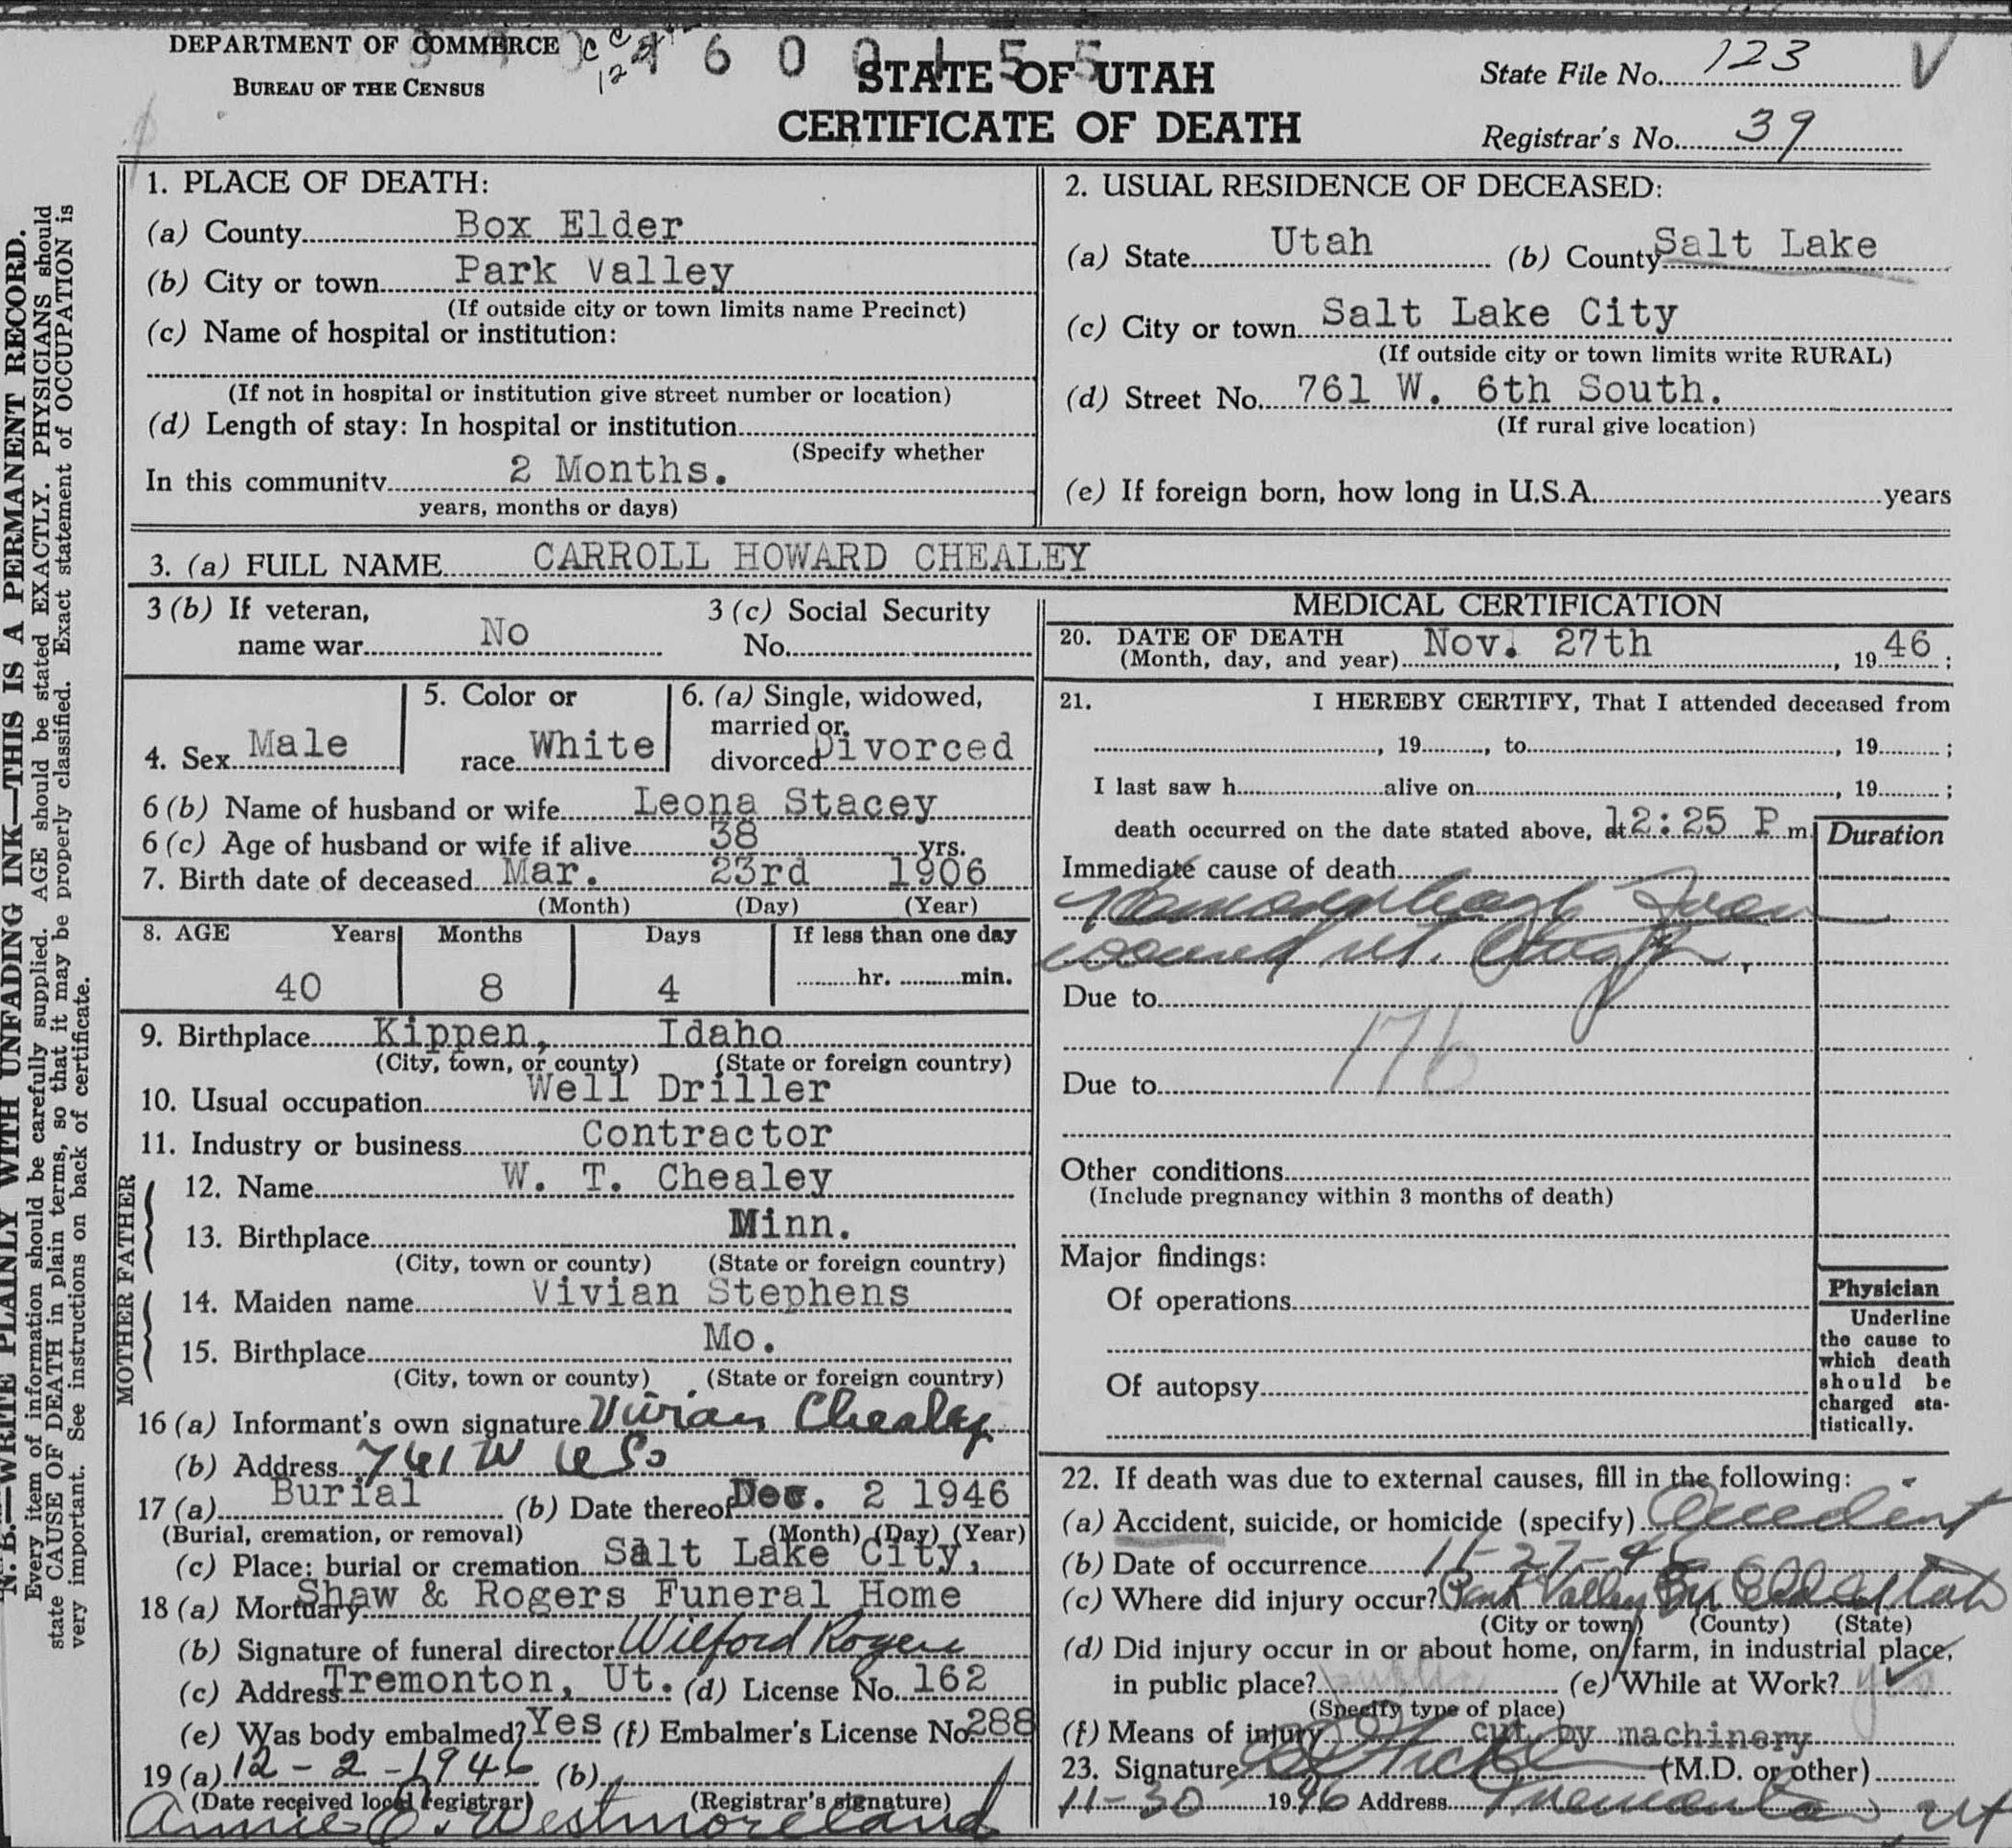 DEPARTMENT OF COMMERCE
BUREAU OF THE CENSUS
STATE OF UTAH
CERTIFICATE OF DEATH
State File No. 123
Registrar's No. 39
N. B.—WRITE PLAINLY WITH UNFADING INK—THIS IS A PERMANENT RECORD.
Every item of information should be carefully supplied. AGE should be stated EXACTLY. PHYSICIANS should
state CAUSE OF DEATH in plain terms, so that it may be properly classified. Exact statement of OCCUPATION is
very important. See instructions on back of certificate.
1. PLACE OF DEATH:
(a) County Box Elder
(b) City or town Park Valley
(If outside city or town limits name Precinct)
(c) Name of hospital or institution:
(If not in hospital or institution give street number or location)
(d) Length of stay: In hospital or institution
(Specify whether
In this community 2 Months.
years, months or days)
2. USUAL RESIDENCE OF DECEASED:
(a) State Utah (b) County Salt Lake
(c) City or town Salt Lake City
(If outside city or town limits write RURAL)
(d) Street No. 761 W. 6th South.
(If rural give location)
(e) If foreign born, how long in U.S.A. years
3. (a) FULL NAME CARROLL HOWARD CHEALEY
3 (b) If veteran,
name war No
3 (c) Social Security
No.
4. Sex Male
5. Color or
race White
6. (a) Single, widowed,
married or
divorced Divorced
6 (b) Name of husband or wife Leona Stacey
6 (c) Age of husband or wife if alive 38 yrs.
7. Birth date of deceased Mar. 23rd 1906
(Month) (Day) (Year)
8. AGE Years Months Days If less than one day
40 8 4 hr. min.
9. Birthplace Kippen, Idaho
(City, town, or county) (State or foreign country)
10. Usual occupation Well Driller
11. Industry or business Contractor
MOTHER FATHER
12. Name W. T. Chealey
13. Birthplace Minn.
(City, town or county) (State or foreign country)
14. Maiden name Vivian Stephens
15. Birthplace Mo.
(City, town or county) (State or foreign country)
16 (a) Informant's own signature Vivian Chealey
(b) Address 761 W 6 So
17 (a) Burial (b) Date thereof Dec. 2 1946
(Burial, cremation, or removal) (Month) (Day) (Year)
(c) Place: burial or cremation Salt Lake City,
18 (a) Mortuary Shaw & Rogers Funeral Home
(b) Signature of funeral director Wilford Rogers
(c) Address Tremonton, Ut. (d) License No. 162
(e) Was body embalmed? Yes (f) Embalmer's License No. 288
19 (a) 12-2-1946 (b)
(Date received local registrar) (Registrar's signature)
Annie E. Westmoreland
MEDICAL CERTIFICATION
20. DATE OF DEATH Nov. 27th
(Month, day, and year) , 19 46 ;
21. I HEREBY CERTIFY, That I attended deceased from
, 19 , to , 19 ;
I last saw h alive on , 19 ;
death occurred on the date stated above, at 12:25 P m.
Duration
Immediate cause of death
from
wound rt.
Due to
176
Due to
Other conditions
(Include pregnancy within 3 months of death)
Major findings:
Of operations
Of autopsy
Physician
Underline
the cause to
which death
should be
charged sta-
tistically.
22. If death was due to external causes, fill in the following:
(a) Accident, suicide, or homicide (specify) Accident
(b) Date of occurrence 11-27-46
(c) Where did injury occur? Park Valley Box Elder Utah
(City or town) (County) (State)
(d) Did injury occur in or about home, on farm, in industrial place,
in public place? public (e) While at Work? yes
(Specify type of place)
(f) Means of injury cut by machinery
23. Signature (M.D. or other)
11-30 1946 Address Tremonton, Ut